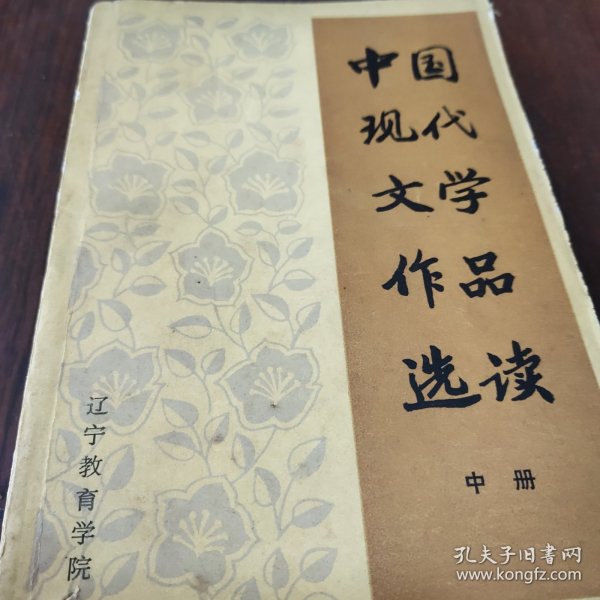 中国
现代
文学
作品
选读
中册
辽宁教育学院
孔夫子旧书网
www.kongfz.com